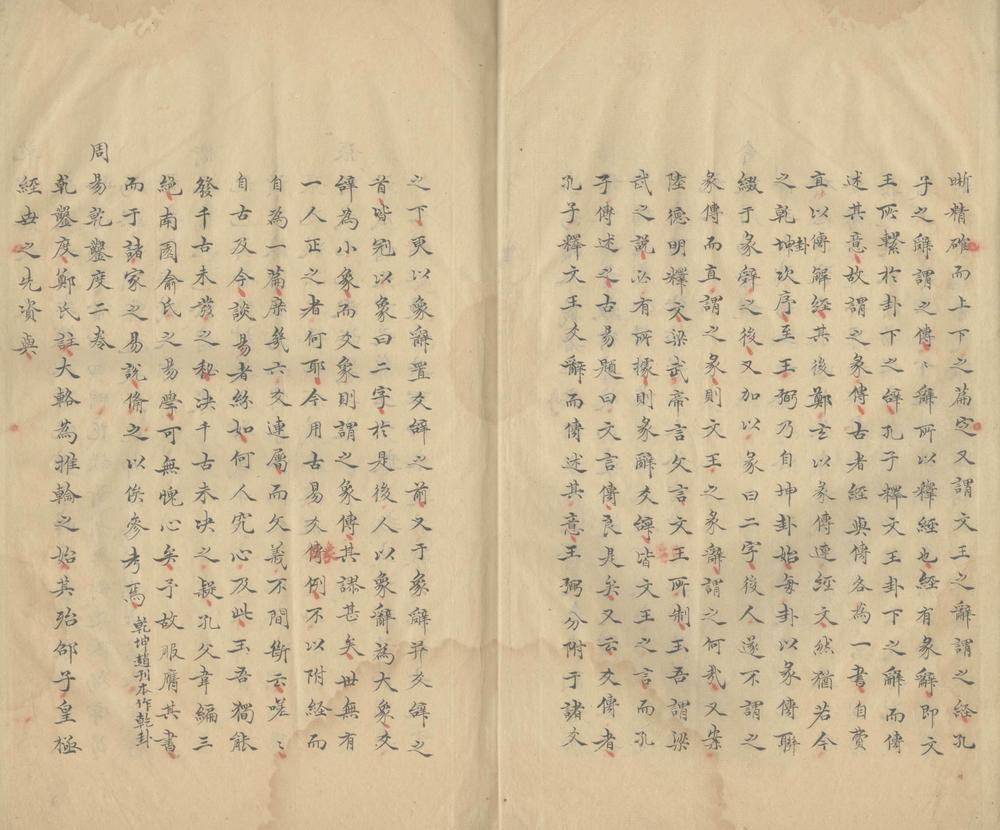 晰精確而上下之篇定又謂文王之辭謂之經孔
子之辭謂之傳〻辭所以釋經也經有彖辭即文
王所繫於卦下之辭孔子釋文王卦下之辭而傳
述其意故謂之彖傳古者經與傳各為一書自費
直以傳解經其後鄭玄以彖傳連經文然猶若今
之乾坤卦次序至王弼乃自坤卦始每卦以彖傳聯
綴于彖辭之後又加以彖曰二字後人遂不謂之
彖傳而直謂之彖則文王之彖辭謂之何哉又案
陸德明釋文梁武帝言文言文王所制玉吾謂梁
武之說必有所據則彖辭爻辭皆文王之言而孔
子傳述之古易題曰文言傳良是矣又云爻傳者
孔子釋文王爻辭而傳述其意王弼分附于諸爻
之下更以象辭置爻辭之前又于象辭并爻辭之
首皆冠以象曰二字於是後人以象辭為大象爻
辭為小象而爻象則謂之象傳其謬甚矣世無有
一人正之者何耶今用古易爻傳例不以附經而
自為一篇庶幾六爻連屬而爻義不間斷云嗟〻
自古及今談易者絲如何人究心及此玉吾獨能
發千古未發之秘決千古未決之疑孔父韋編三
絕南園俞氏之易學可無愧心矣予故服膺其書
而于諸家之易說脩之以俟參考焉 乾坤趙刊本作乾卦
周易乾鑿度二卷
乾鑿度鄭氏註大輅為推輪之始其殆邵子皇極
經世之先資與